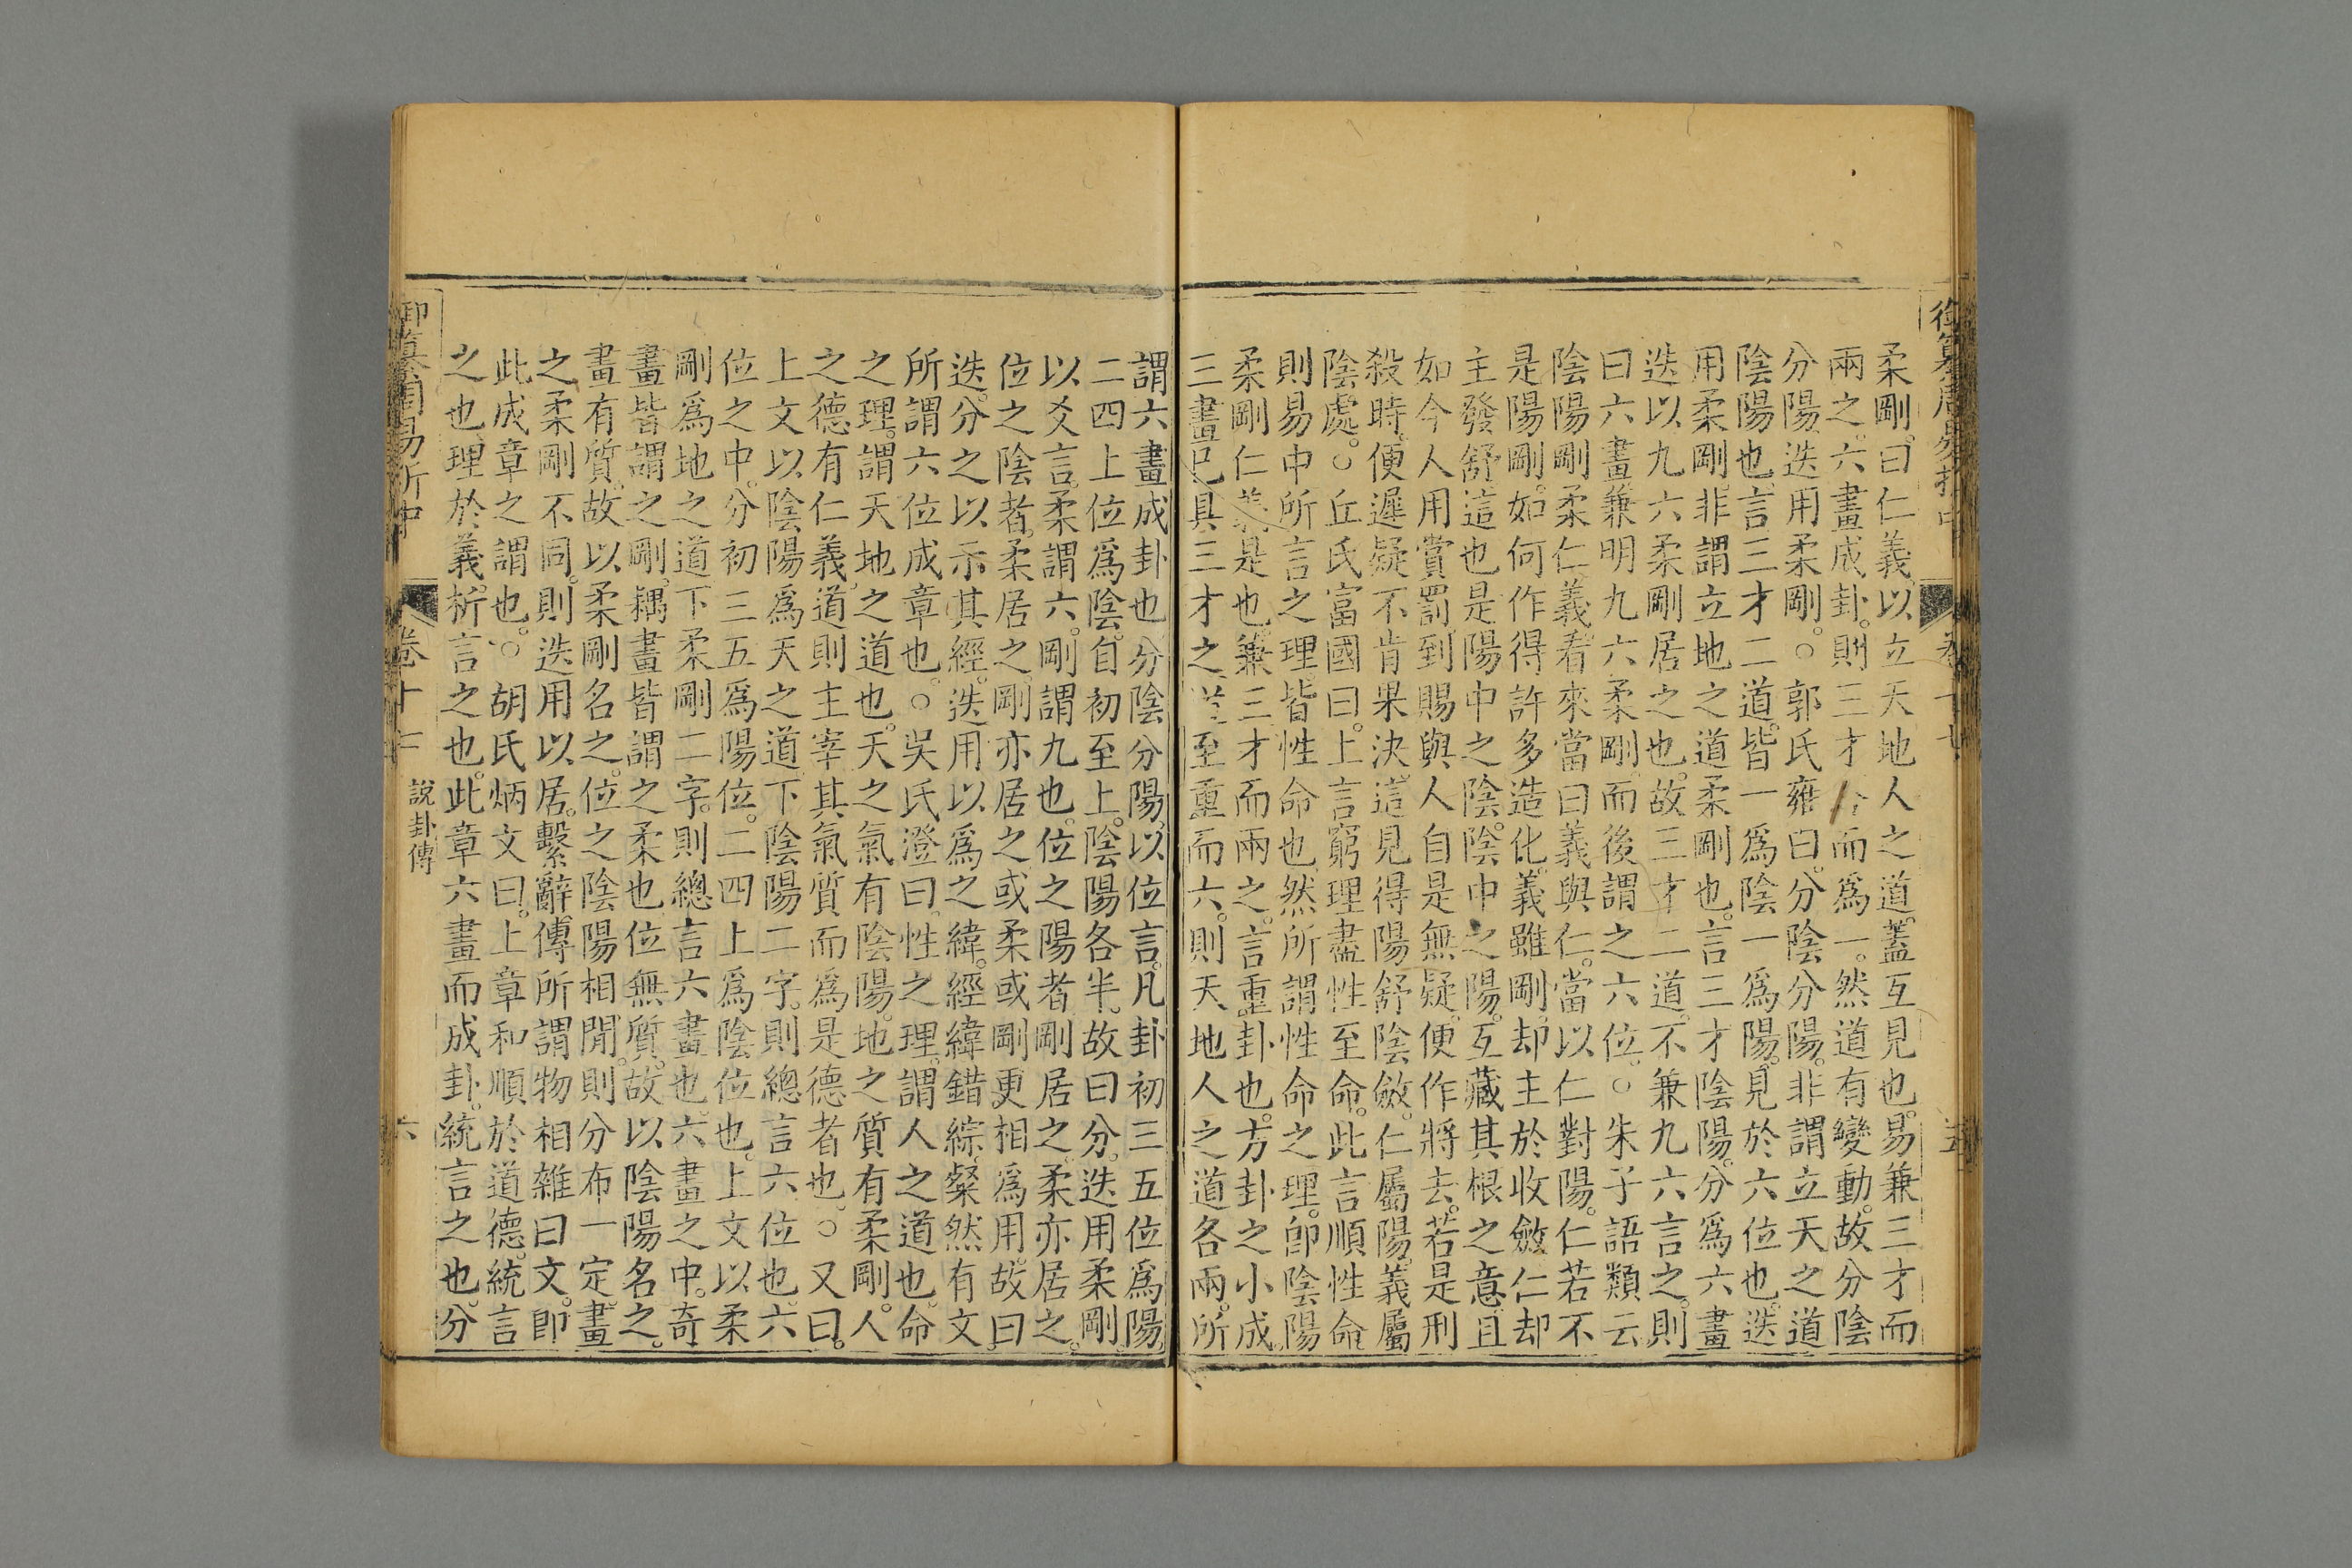 柔剛。曰仁義。以立天地人之道。蓋互見也。易兼三才而
兩之。六畫成卦。則三才合而爲一。然道有變動。故分陰
分陽。迭用柔剛。○郭氏雍曰。分陰分陽。非謂立天之道
陰陽也。言三才二道。皆一爲陰一爲陽。見於六位也。迭
用柔剛。非謂立地之道柔剛也。言三才陰陽。分爲六畫
迭以九六柔剛居之也。故三才二道。不兼九六言之。則
曰六畫。兼明九六柔剛。而後謂之六位。○朱子語類云
陰陽剛柔仁義。看來當曰義與仁。當以仁對陽。仁若不
是陽剛。如何作得許多造化。義雖剛。却主於收斂。仁却
主發舒。這也是陽中之陰。陰中之陽。互藏其根之意。且
如今人用賞罰。到賜與人自是無疑。便作將去。若是刑
殺時。便遲疑不肯果決。這見得陽舒陰斂。仁屬陽。義屬
陰處。○丘氏富國曰。上言窮理盡性至命。此言順性命
則易中所言之理。皆性命也。然所謂性命之理。卽陰陽
柔剛仁義是也。兼三才而兩之。言重卦也。方卦之小成。
三畫已具三才之道。至重而六。則天地人之道各兩。所
謂六畫成卦也。分陰分陽。以位言。凡卦初三五位爲陽。
二四上位爲陰。自初至上。陰陽各半。故曰分。迭用柔剛
以爻言。柔謂六。剛謂九也。位之陽者剛居之。柔亦居之。
位之陰者。柔居之。剛亦居之。或柔或剛。更相爲用。故曰
迭。分之以示其經。迭用以爲之緯。經緯錯綜。粲然有文
所謂六位成章也。○吳氏澄曰。性之理。謂人之道也。命
之理。謂天地之道也。天之氣有陰陽。地之質有柔剛。人
之德有仁義。道則主宰其氣質而爲是德者也。○又曰。
上文以陰陽爲天之道。下陰陽二字。則總言六位也。六
位之中。分初三五爲陽位。二四上爲陰位也。上文以柔
剛爲地之道。下柔剛二字。則總言六畫也。六畫之中。奇
畫皆謂之剛。耦畫皆謂之柔也。位無質。故以陰陽名之。
畫有質。故以柔剛名之。位之陰陽相閒。則分布一定。畫
之柔剛不同。則迭用以居。繫辭傳所謂物相雜曰文。卽
此成章之謂也。○胡氏炳文曰。上章和順於道德。統言
之也。理於義。析言之也。此章六畫而成卦。統言之也。分
御纂周易折中
卷十七
說卦傳
六